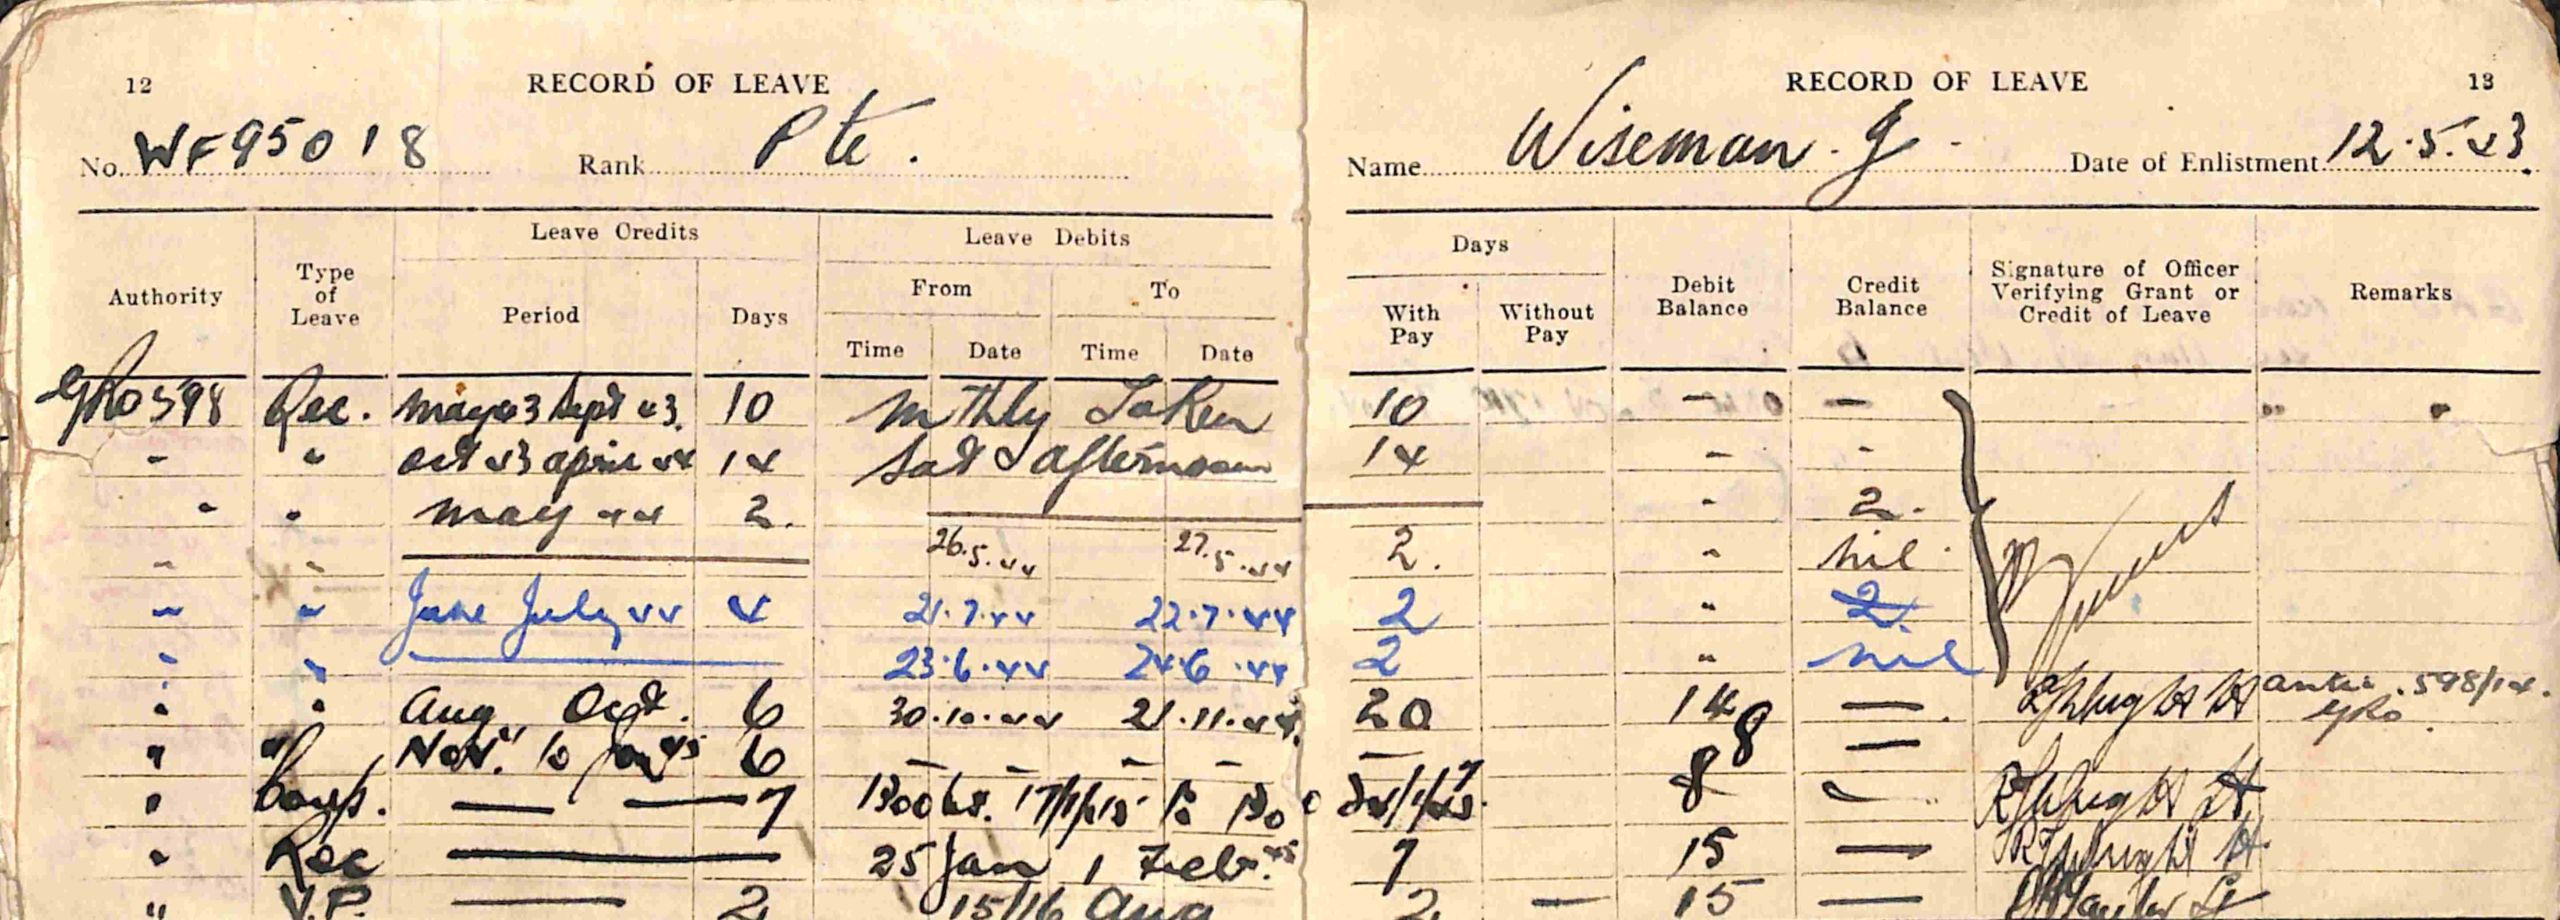 12 RECORD OF LEAVE RECORD OF LEAVE 13
No. WF95018 Rank Pte. Name Wiseman. G - Date of Enlistment 12.5.43.
Leave Credits Leave Debits Days
Authority Type of Leave Period Days From To With Pay Without Pay Debit Balance Credit Balance Signature of Officer Verifying Grant or Credit of Leave Remarks
Time Date Time Date
GRO 598 Rec. May 43 Sept 43. 10 Mthly Taken 10 - —
- " Oct 43 April 44 14 Sat afternoon 14 - -
- " May 44 2. - 2.
- " 26.5.44 27.5.44 2. " nil
- " June July 44 4 21.7.44 22.7.44 2 " 2.
" " 23.6.44 24.6.44 2 " nil
" " Aug. Oct. 6 30.10.44 21.11.44. 20 14 — 598/14.
GRO
" " Nov. to Jan 45 6 - - - - - 8 —
" Comp. — — 7 1300 hrs. 17/1/45 to 24/1/45. 7 8 —
" Rec — 25 Jan 1 Feb. 45 7 15 —
" V.P. — 2 15/16 Aug 2 — 15 —